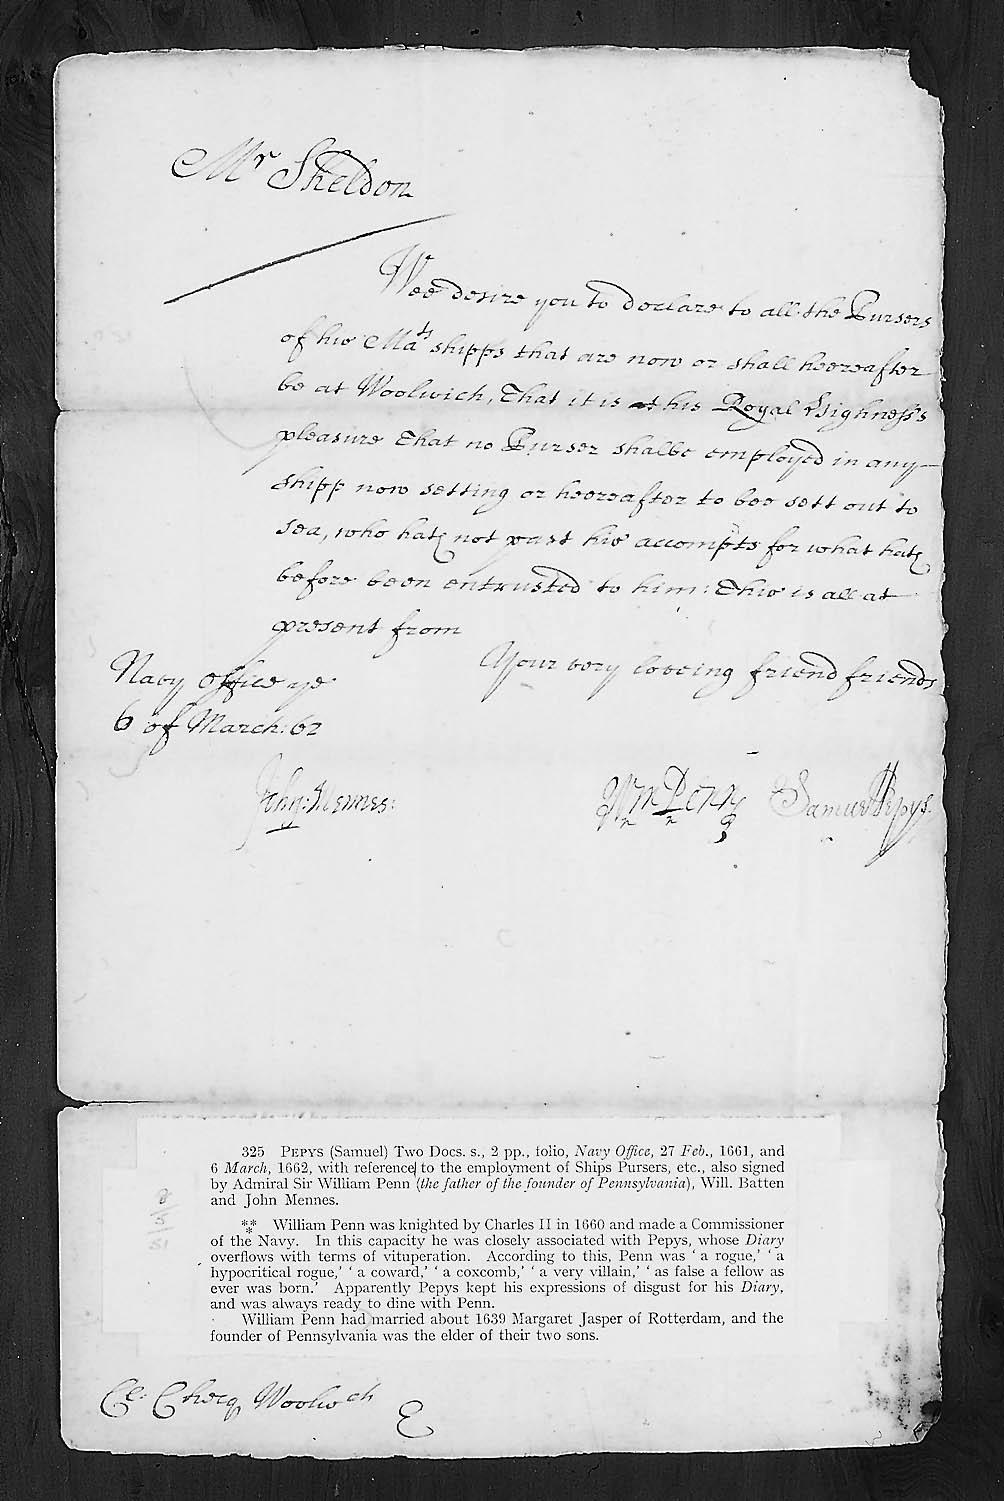 Mr Sheldon
Wee desire you to declare to all the Pursers
of his Mats shipps that are now or shall heereafter
be at Woolwich, That it is his Royal Highness's
pleasure That no Purser shalbe employed in any
shipp now setting or heereafter to bee sett out to
sea, who hath not past his accompts for what hath
before been entrusted to him: This is all at
present from
Your very loveing friend friends
Navy Office ye
6 of March: 62
John: Mennes: Wm Penn Samuel Pepys.
325 PEPYS (Samuel) Two Docs. s., 2 pp., folio, Navy Office, 27 Feb., 1661, and
6 March, 1662, with reference to the employment of Ships Pursers, etc., also signed
by Admiral Sir William Penn (the father of the founder of Pennsylvania), Will. Batten
and John Mennes.
*** William Penn was knighted by Charles II in 1660 and made a Commissioner
of the Navy. In this capacity he was closely associated with Pepys, whose Diary
overflows with terms of vituperation. According to this, Penn was ' a rogue,' ' a
hypocritical rogue,' ' a coward,' ' a coxcomb,' ' a very villain,' ' as false a fellow as
ever was born.' Apparently Pepys kept his expressions of disgust for his Diary,
and was always ready to dine with Penn.
William Penn had married about 1639 Margaret Jasper of Rotterdam, and the
founder of Pennsylvania was the elder of their two sons.
8/5/51
Cl: Checq Woolwch